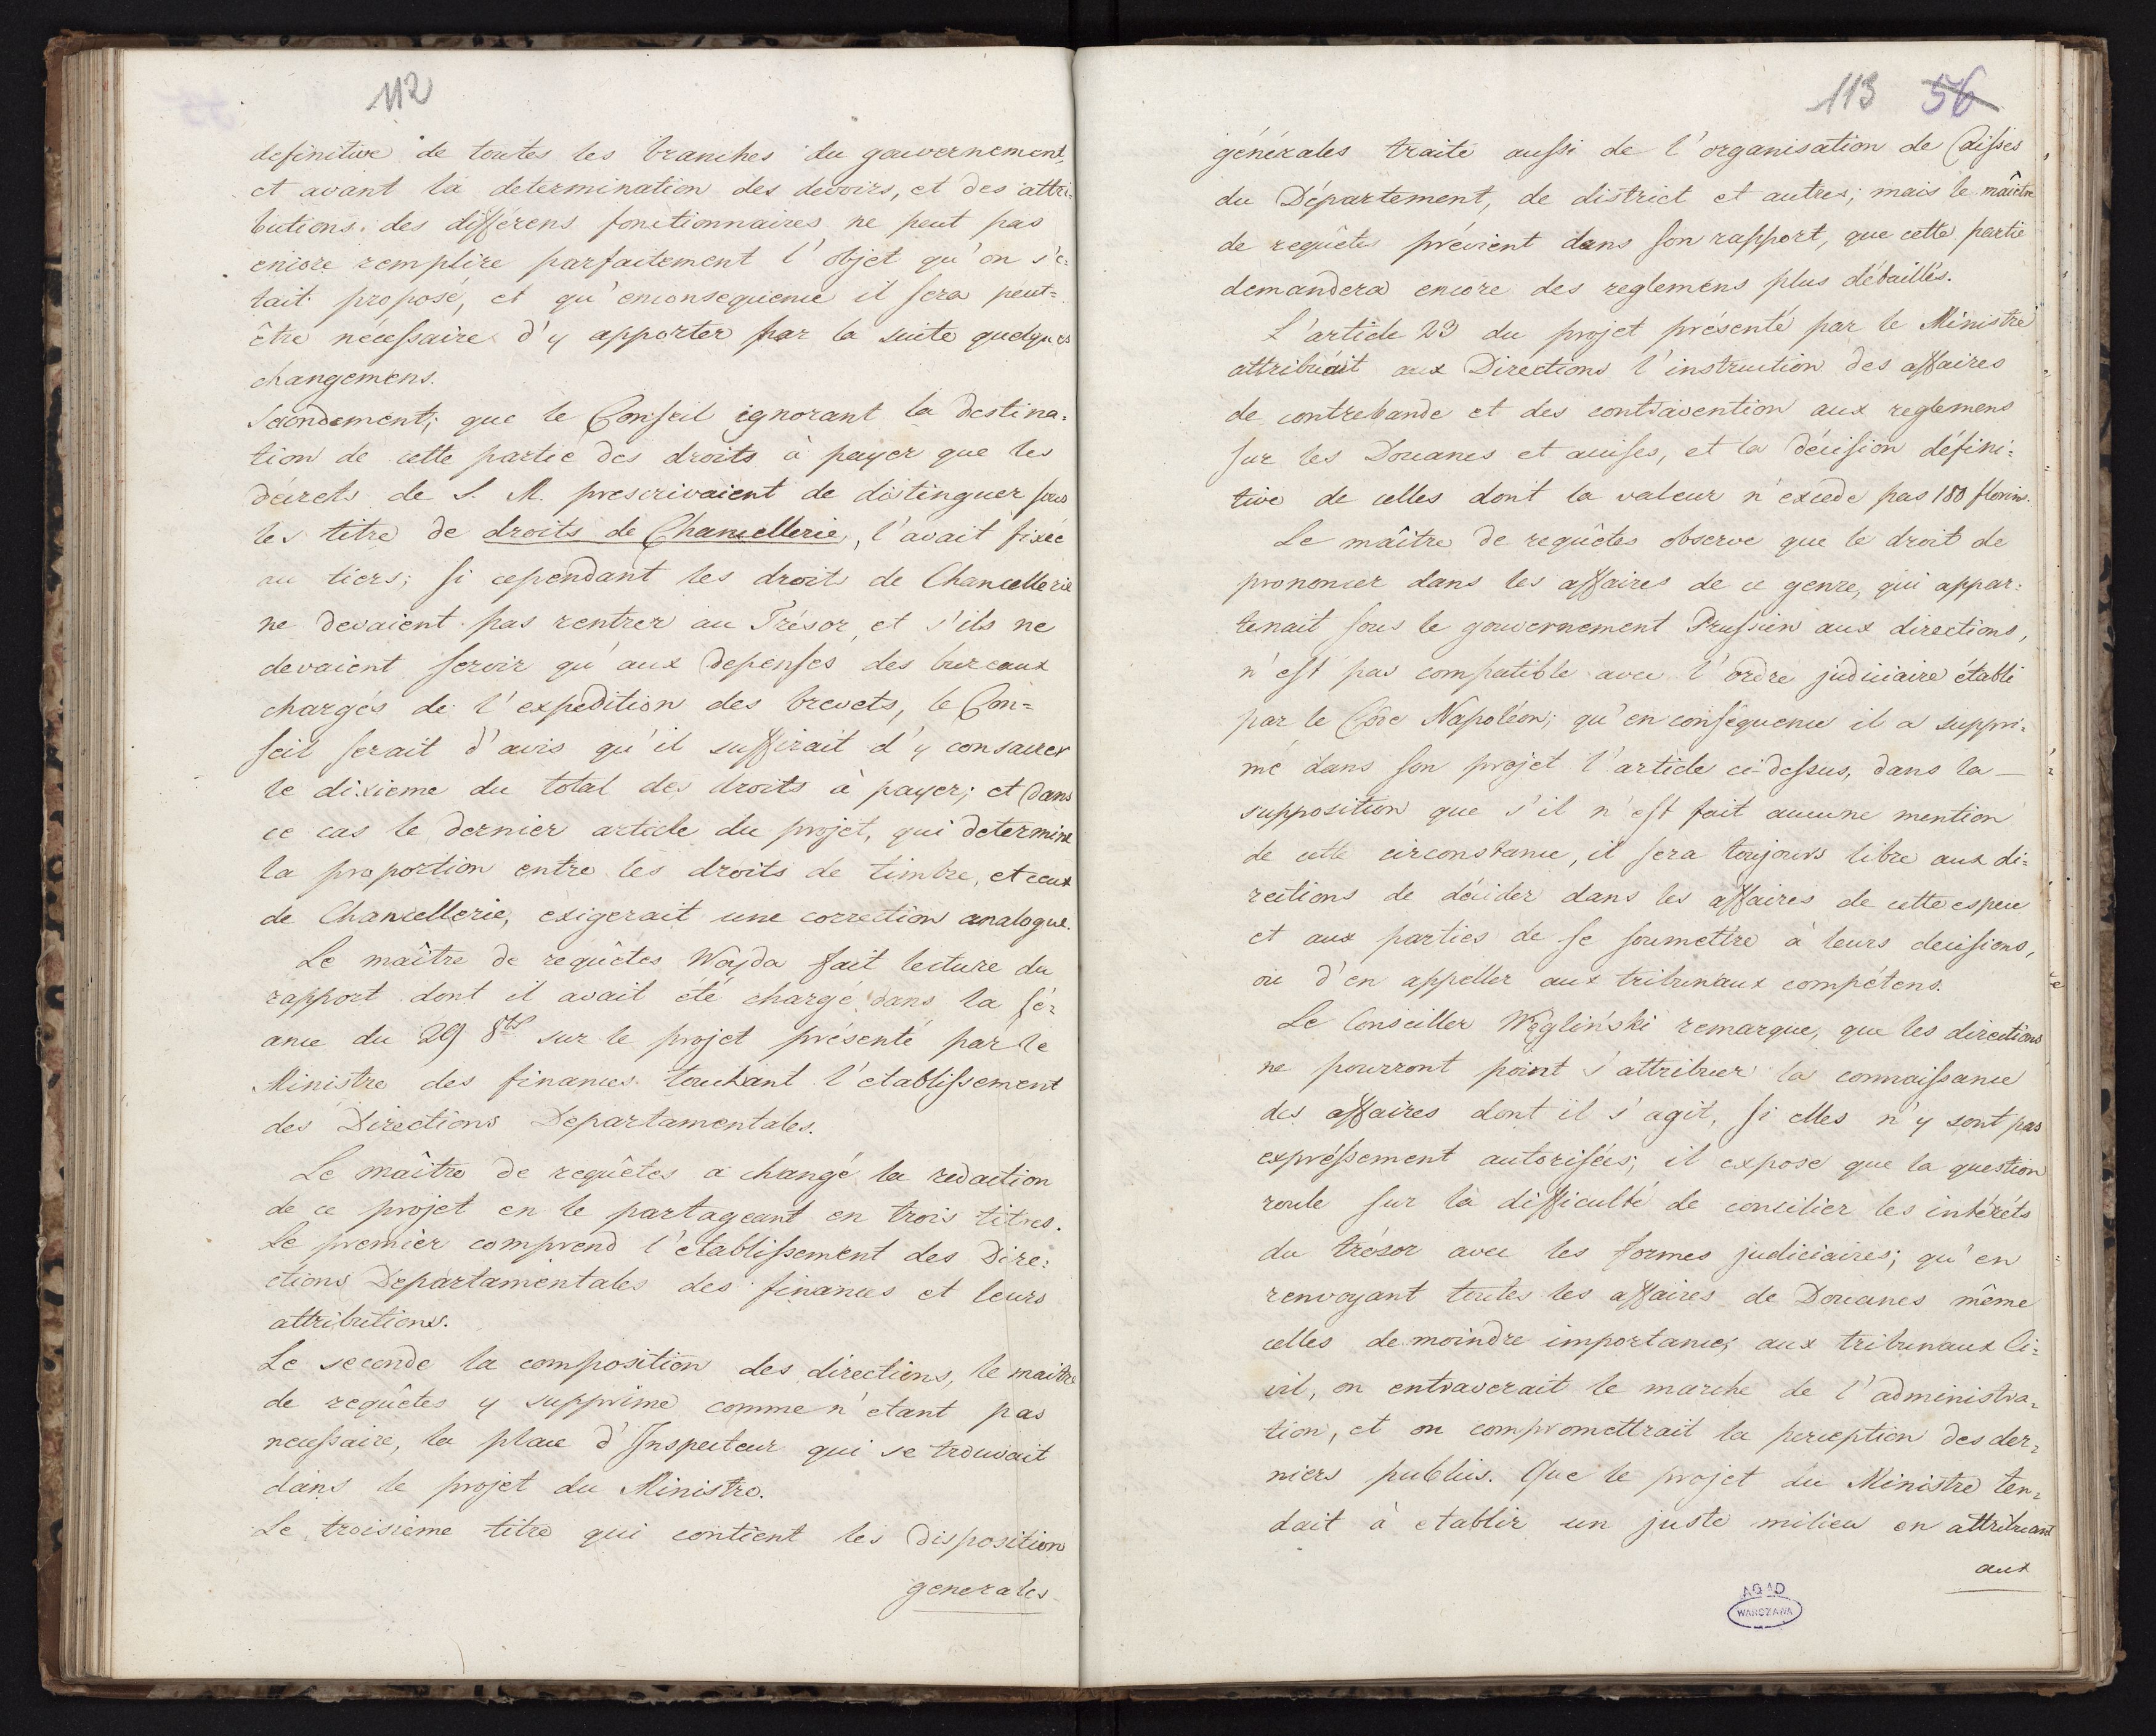 112
definitive de toutes les branches du gouvernement,
et avant la determination des devoirs, et des attri=
butions des différens fonctionnaires ne peut pas
encore remplire parfaitement l'objet qu'on s'é=
tait proposé, et qu'enconsequence il sera peut=
être nécessaire d'y apporter par la suite quelques
changemens.
Secondement; que le Conseil ignorant la destina=
tion de cette partie des droits à payer que les
décrets de S. M. prescrivaient de distinguer sous
les titre de droits de Chancellerie, l'avait fixée
au tiers; si cependant les droits de Chancellerie
ne devaient pas rentrer au Trésor, et s'ils ne
devaient servir qu'aux depenses des bureaux
chargés de l'expedition des brevets, le Con=
seil serait d'avis qu'il suffirait d'y consacrer
le dixieme du total des droits à payer; et dans
ce cas le dernier article du projet, qui determine
la proportion entre les droits de timbre, et ceux
de Chancellerie, exigerait une correction analogue.
Le maître de requêtes Wayda fait lecture du
rapport dont il avait été chargé dans la sé=
ance du 29 8bre sur le projet présenté par le
Ministre des finances touchant l'etablissement
des Directions Departamentales.
Le maître de requêtes a changé la redaction
de ce projet en le partageant en trois titres.
Le premier comprend l'etablissement des Dire=
ctions Departamentales des finances et leurs
attributions.
Le seconde la composition des directions, le maitre
de requêtes y supprime comme n'etant pas
necessaire, la place d'Inspecteur qui se trouvait
dans le projet du Ministre.
Le troisième titre qui contient les disposition
generales
113 56
générales traite aussi de l'organisation de Caisses
du Département, de district et autres; mais le maître
de requêtes prévient dans son rapport, que cette partie
demandera encore des reglemens plus détaillés.
L'article 23 du projet présenté par le Ministre
attribuait aux Directions l'instruction des affaires
de contrebande et des contravention aux reglemens
sur les Douanes et accises, et la décision défini=
tive de celles dont la valeur n'excede pas 180 florins.
Le maître de requêtes observe que le droit de
prononcer dans les affaires de ce genre, qui appar=
tenait sous le gouvernement Prussien aux directions,
n'est pas compatible avec l'ordre judiciaire établi
par le Code Napoléon; qu'en conséquence il a suppri=
mé dans son projet l'article ci-dessus, dans la
supposition que s'il n'est fait aucune mention
de cette circonstance, il sera toujours libre aux di=
rections de décider dans les affaires de cette espece
et aux parties de se soumettre à leurs decisions,
ou d'en appeller aux tribunaux compétens.
Le Conseiller Węgliński remarque, que les directions
ne pourront point s'attribuer la connaissance
des affaires dont il s'agit, si elles n'y sont pas
expréssement autorisées; il expose que la question
roule sur la difficulté de concilier les intérêts
du trésor avec les formes judiciaires; qu'en
renvoyant toutes les affaires de Douanes même
celles de moindre importance, aux tribunaux Ci=
vil, on entraverait le marche de l'administra=
tion, et on compromettrait la perception des der=
niers publics. Que le projet du Ministre ten=
dait à etablir un juste milieu en attribuant
aux
AGAD
WARSZAWA